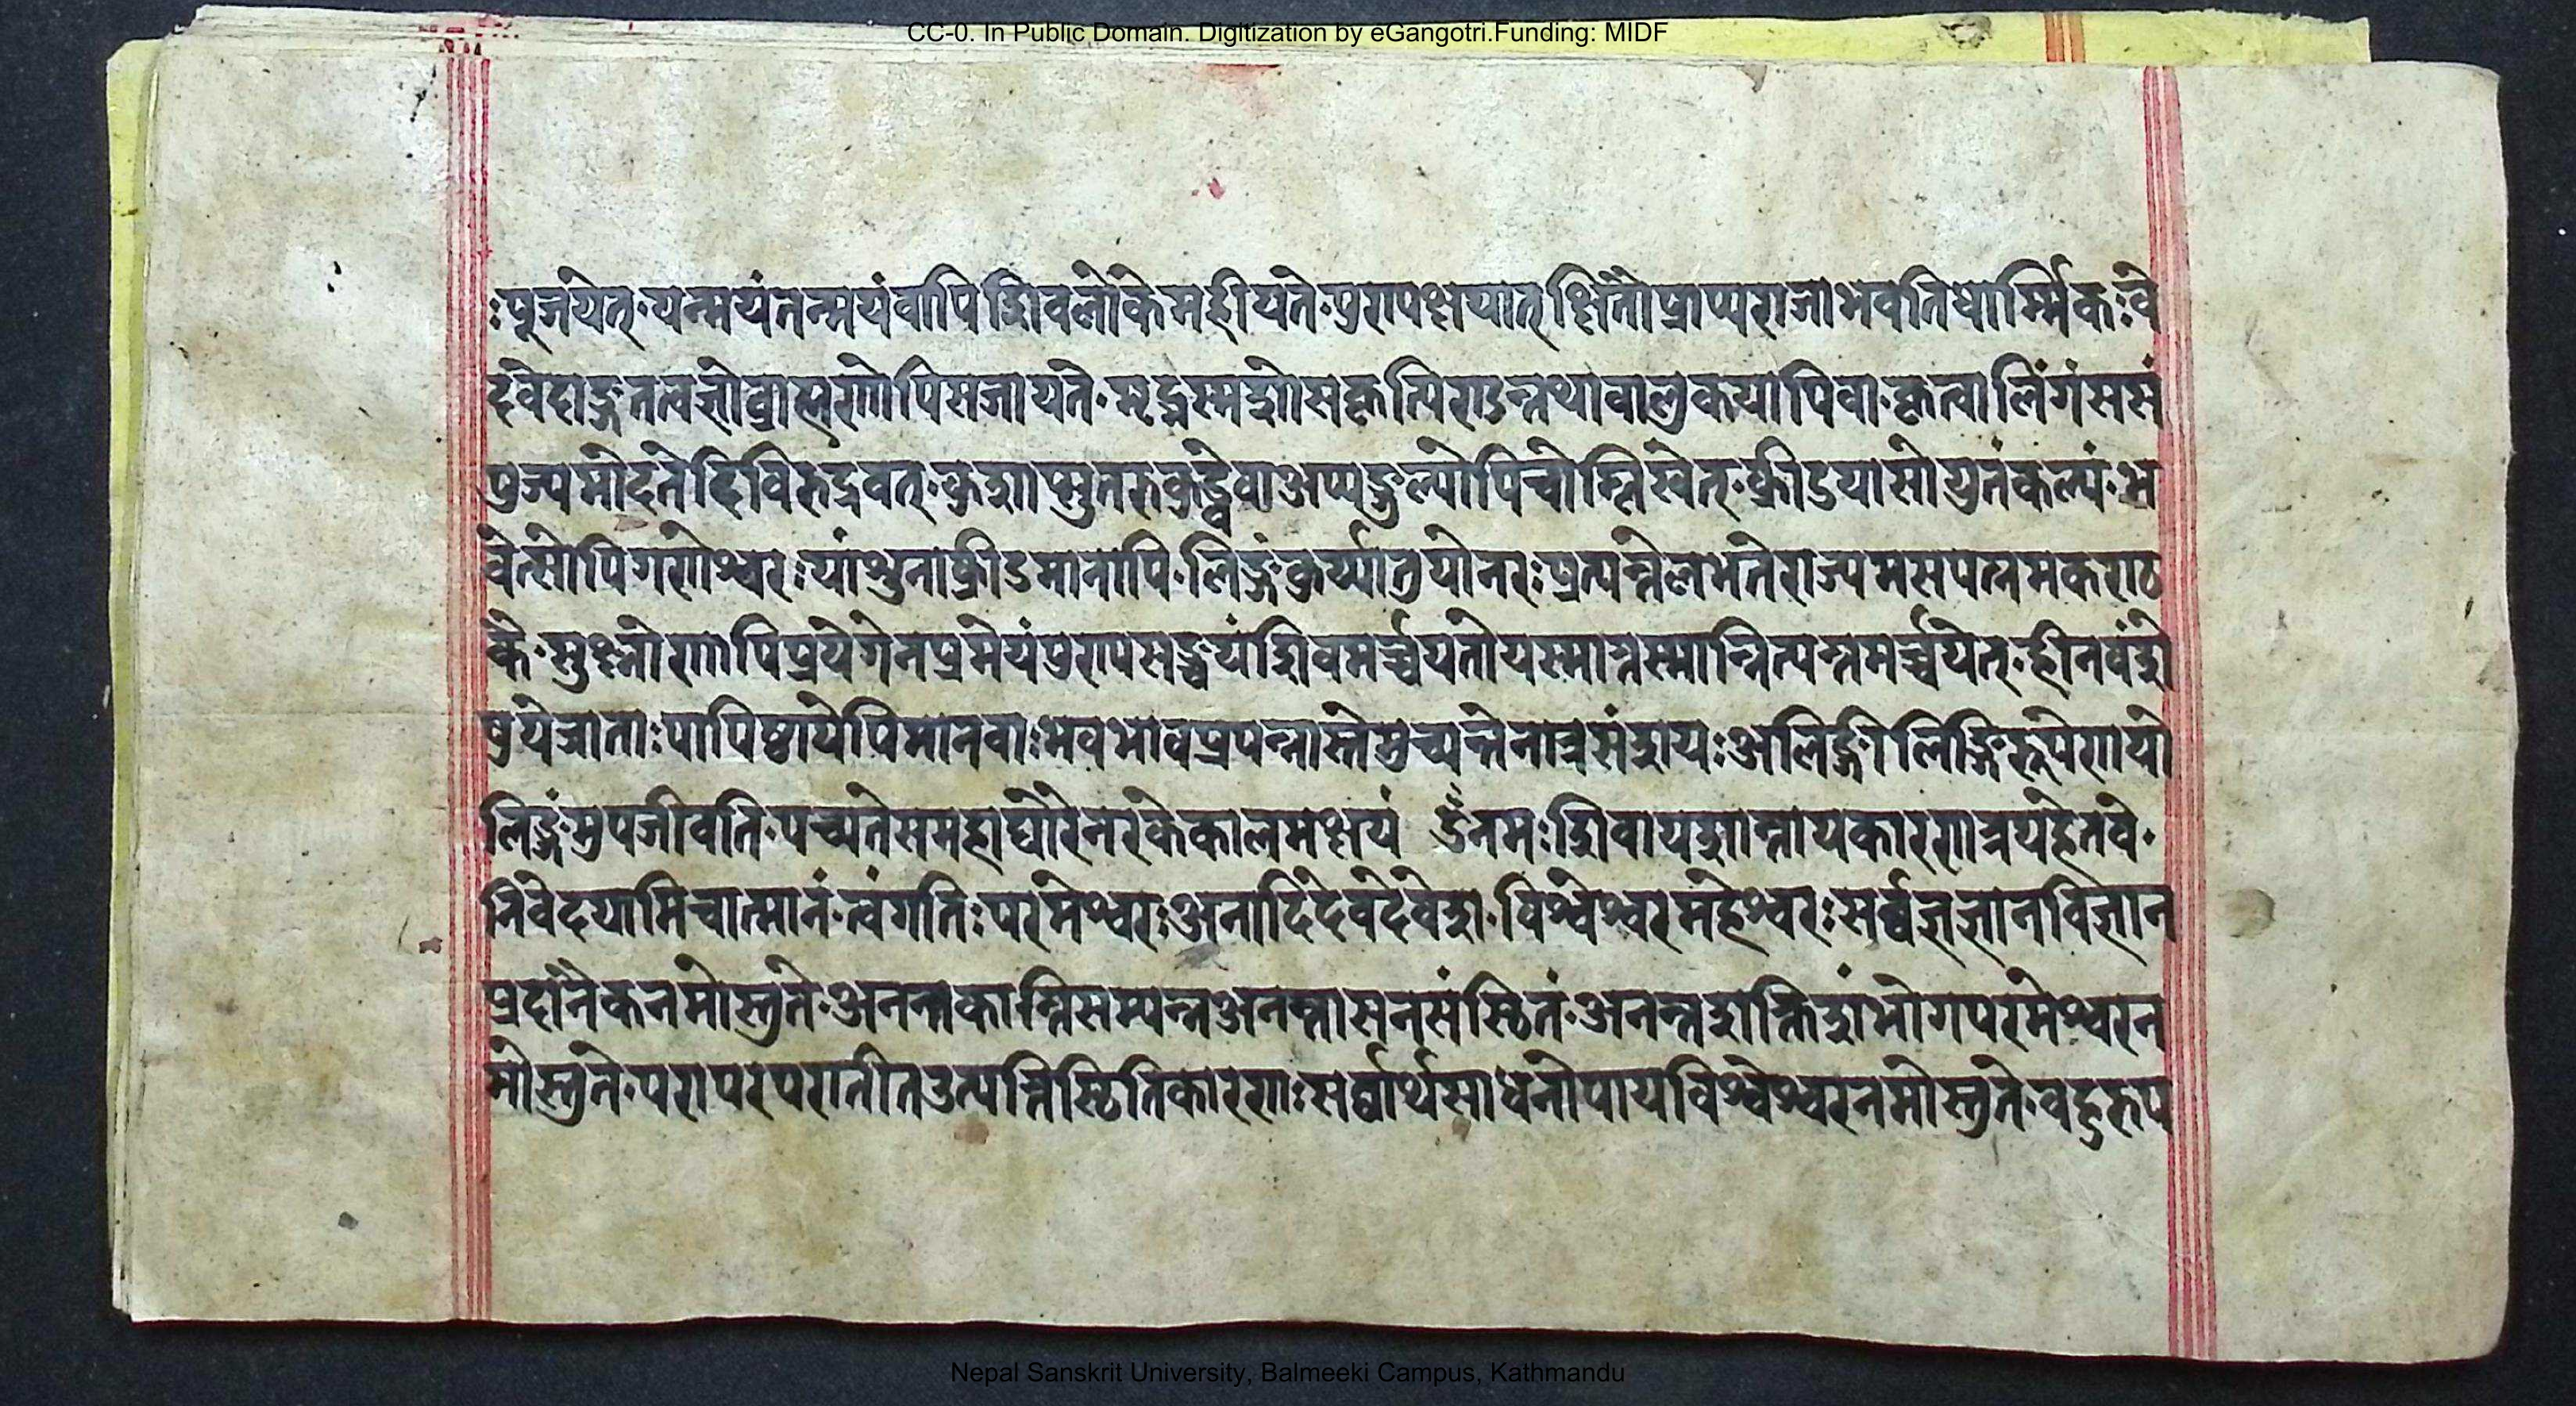 CC-0. In Public Domain. Digitization by eGangotri.Funding: MIDF
ःपूजयेत्·यन्मयंतन्मयंवापिशिवलोकेमहीयते·पुण्यक्षयात्क्षितौप्राप्यराजाभवतिधार्म्मिकःवे
दवेदाङ्गतत्वज्ञोब्राह्मणोपिसजायते·मृद्भस्मगोसकृत्पिण्डन्तथावालुकयापिवा·कृत्वालिंगंससं
पुज्यमोदतेदिविरुद्रवत्·अप्यङ्गुल्पोपिचोन्निखेत्·क्रीडयासोयुतंकल्पं·भ
वेत्सोपिगणेश्वरःपांशुनाक्रीडमानोपि·लिङ्गंकुर्य्यात्तुयोनरःप्रत्यन्तेलभतेराज्यमसपत्नमकण्ट
के·प्रयेगेनप्रमेयंपुण्यसङ्ख्ययंशिवमर्च्चयतोयस्मात्तस्मान्नित्यन्तमर्च्चयेत्·हीनवंशे
षुयेजाताःपापिष्ठायेपिमानवाःभवभावप्रपन्नास्तेमुच्यन्तेनात्रसंशयःअलिङ्गीलिङ्गिरूपेणयो
लिङ्गंमुपजीवति·पच्यतेसमहाघोरेनरकेकालमक्षयं ॐनमःशिवायशान्तायकारणत्रयहेतवे·
निवेदयामिचात्मानं·त्वंगतिःपरमेश्वरःअनादिंदेवदेवेश·विश्वेश्वरमहेश्वरःसर्व्वज्ञज्ञानविज्ञान
प्रदानैकनमोस्तुते·अनन्तकान्तिसम्पन्नअनन्तासनसंस्थितं·अनन्तशक्तिशंभोगपरमेश्वरन
मोस्तुते·परापरपरातीतउत्पत्तिस्थितिकारणःसर्व्वार्थसाधनोपायविश्वेश्वरनमोस्तुते·वहुरुप
Nepal Sanskrit University, Balmeeki Campus, Kathmandu